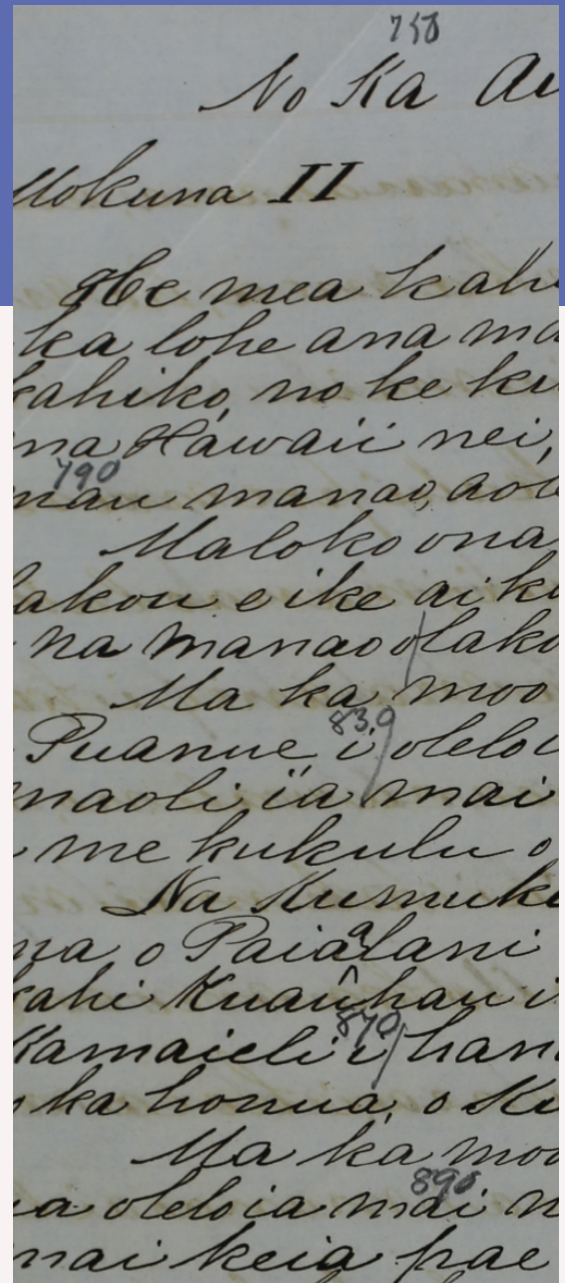 750
No Ka Au
Mokuna II
He mea kah
ka lohe ana ma
kahiko, no ke ku
na Hawaii nei,
790
mau manao, aole
Maloko ona
lakou e ike ai k
na manao o lako
Ma ka moo
830
Puanue, i olelo i
naoli ia mai
me kukulu o
Na Kumuk
na o Paiaalani
kahi Kuauhau i
870
Kamaieli i han
ka honua, o Ku
Ma ka moo
890
a oleloia mai n
mai keia pae